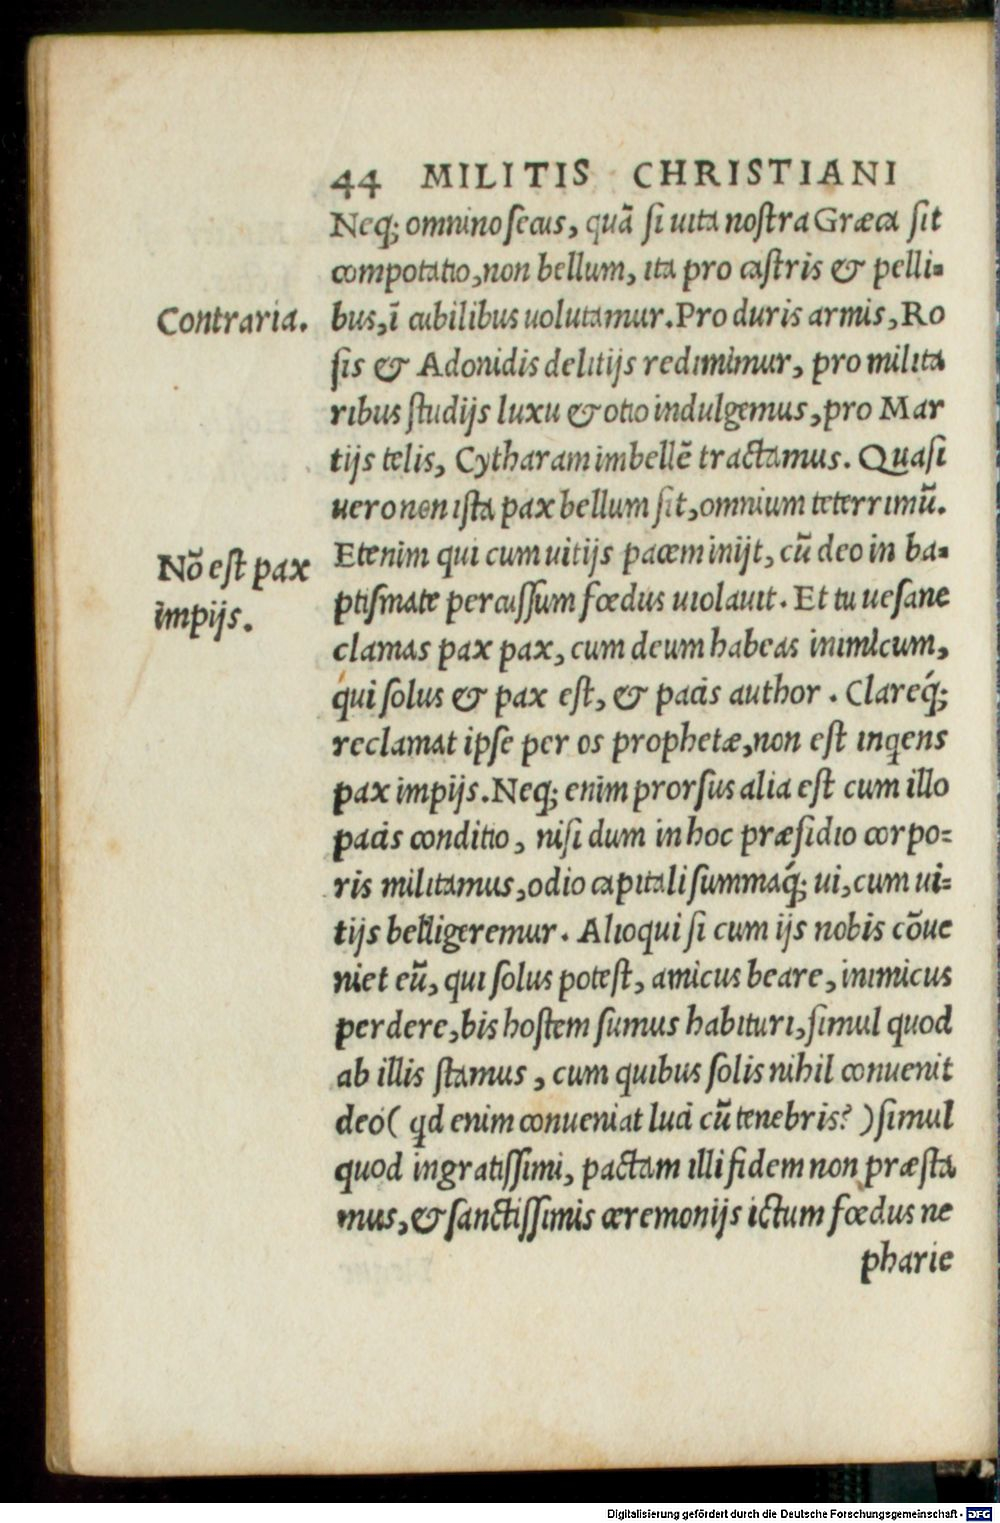 44 MILITIS CHRISTIANI
Neq; omnino secus, quã si uita nostra Græca sit
compotatio, non bellum, ita pro castris & pelli-
Contraria.
bus, ĩ cubilibus uolutamur. Pro duris armis, Ro
sis & Adonidis delitijs redimimur, pro milita
ribus studijs luxu & otio indulgemus, pro Mar
tijs telis, Cytharam imbellẽ tractamus. Quasi
uero non ista pax bellum sit, omnium teterrimũ.
Nõ est pax
impijs.
Etenim qui cum uitijs pacem inijt, cũ deo in ba-
ptismate percussum fœdus uiolauit. Et tu uesane
clamas pax pax, cum deum habeas inimicum,
qui solus & pax est, & pacis author. Clareq́;
reclamat ipse per os prophetæ, non est inqens
pax impijs. Neq; enim prorsus alia est cum illo
pacis conditio, nisi dum in hoc præsidio corpo-
ris militamus, odio capitali summaq́; ui, cum ui-
tijs belligeremur. Alioqui si cum ijs nobis cõue
niet eũ, qui solus potest, amicus beare, inimicus
perdere, bis hostem sumus habituri, simul quod
ab illis stamus, cum quibus solis nihil conuenit
deo( qd enim conueniat luci cũ tenebris? ) simul
quod ingratissimi, pactam illi fidem non præsta
mus, & sanctissimis ceremonijs ictum fœdus ne
pharie
Digitalisierung gefördert durch die Deutsche Forschungsgemeinschaft - DFG